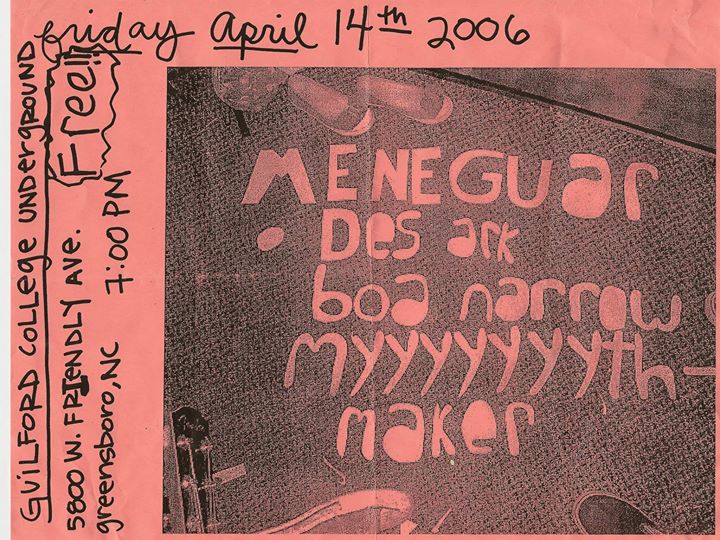 friday April 14th 2006
GUILFORD COLLEGE UNDERGROUND
Free!!
5800 W. FRIENDLY AVE.
greensboro, NC
7:00 PM
MENEGUar
Des ark
boa narrow
Myyyyyyyth-
maker